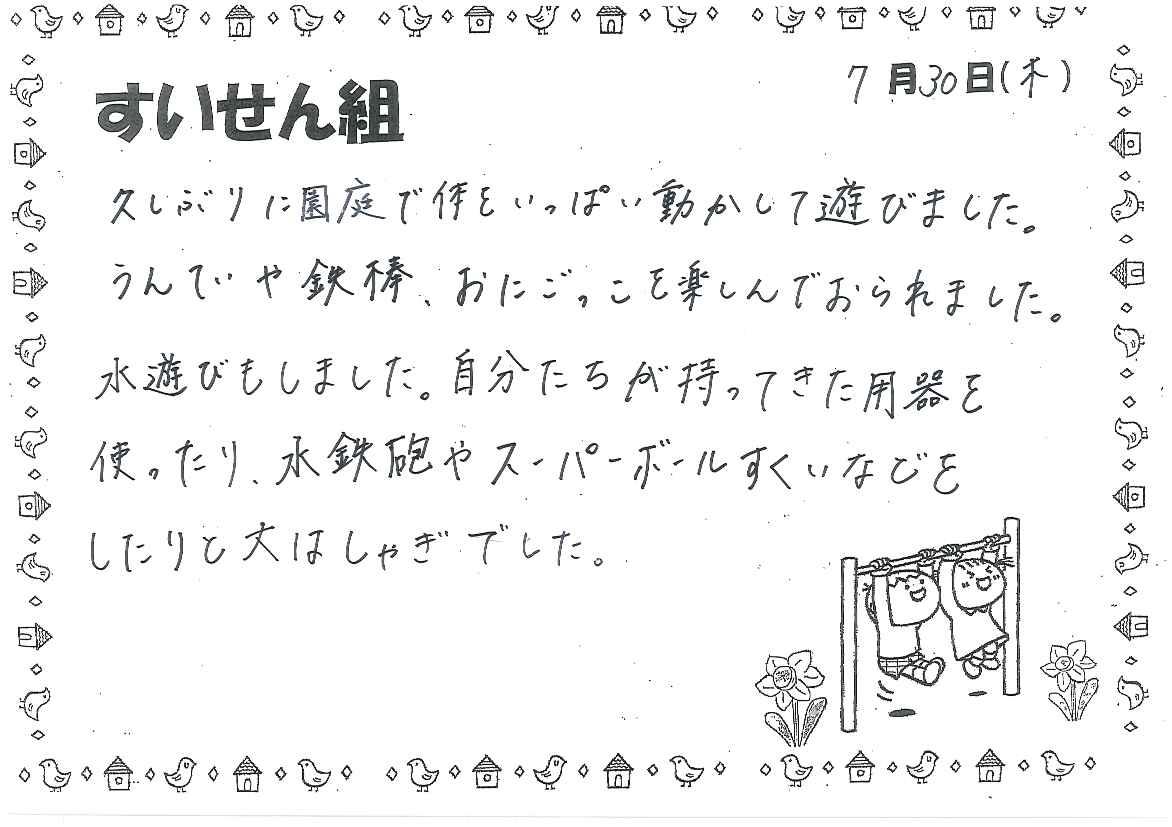 すいせん組
7月30日(木)
久しぶりに園庭で体をいっぱい動かして遊びました。
うんていや鉄棒、おにごっこを楽しんでおられました。
水遊びもしました。自分たちが持ってきた用器を
使ったり、水鉄砲やスーパーボールすくいなどを
したりと大はしゃぎでした。